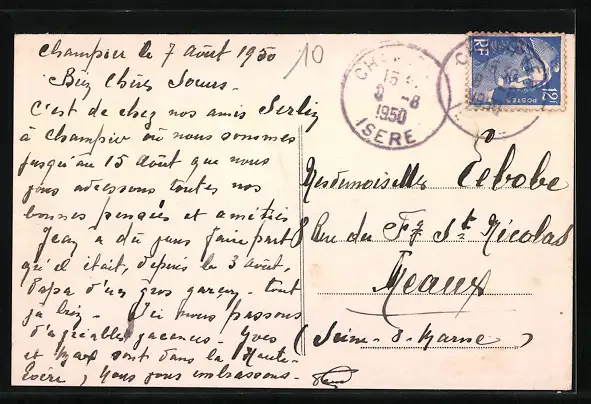 Champier le 7 Août 1950
10
Bien Chères Soeurs -
C'est de chez nos amis Serliz
à Champier où nous sommes
jusqu'au 15 Août que nous
vous adressons toutes nos
bonnes pensées et amitiés
Jean a dû vous faire part
qu'il était, depuis le 3 août,
Papa d'un gros garçon - tout
va bien - Ici nous passons
d'agréables vacances - Yves
et Max sont dans la Haute-
Loire, Nous vous embrassons -
Mesdemoiselles Lebobe
8 Rue du Fg St Nicolas
Meaux
(Seine-&-Marne)
15
8 -8
1950
ISERE
RF
POSTES
12F